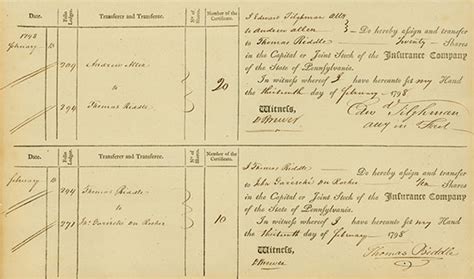 Date. Folio Ledger. Transferer and Transferee. No. of Shares. Number of the Certificate.
1798
February 13
709 Andrew Allen
to
794 Thomas Biddle
20
I Edward Tilghman Atty
to Andrew Allen Do hereby assign and transfer
to Thomas Biddle Twenty Shares
in the Capital or Joint Stock of the Insurance Company
of the State of Pennsylvania.
In witness whereof I have hereunto set my Hand
the thirteenth day of February 1798
Witness,
Edwd Tilghman
atty in fact
Date. Folio Ledger. Transferer and Transferee. No. of Shares. Number of the Certificate.
February 13
794 Thomas Biddle
to
771
10
I Thomas Biddle Do hereby assign and transfer
to John Ten Shares
in the Capital or Joint Stock of the Insurance Company
of the State of Pennsylvania.
In witness whereof I have hereunto set my Hand
the thirteenth day of February 1798
Witness,
Thomas Biddle